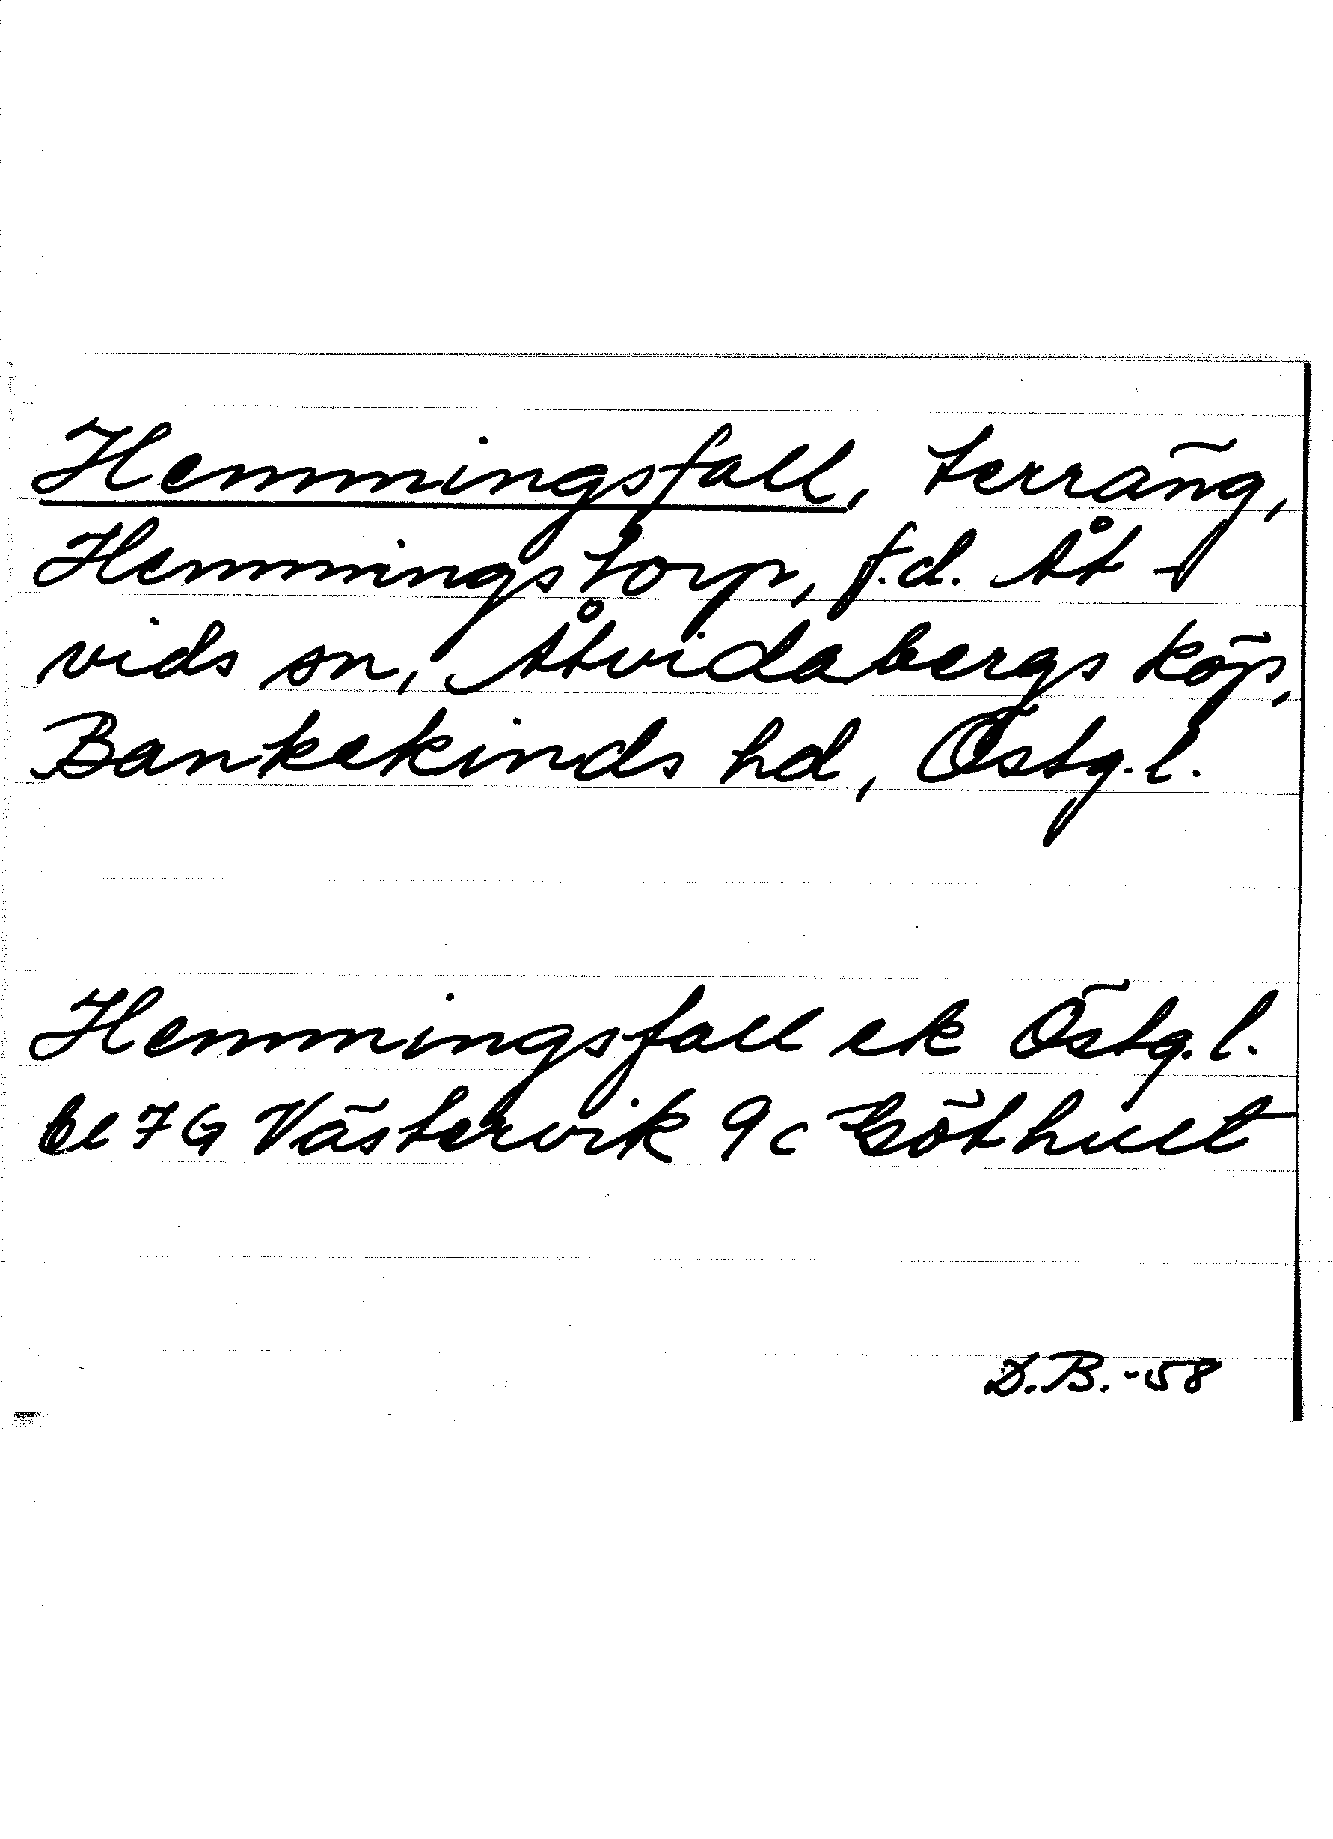 Hemmingsfall, terräng,
Hemmingstorp, f.d. Åt-
vids sn, Åtvidabergs köp,
Bankekinds hd, Östg.l.
Hemmingsfall ek Östg.l.
bl 7G Västervik 9c Göthult
D.B.-58